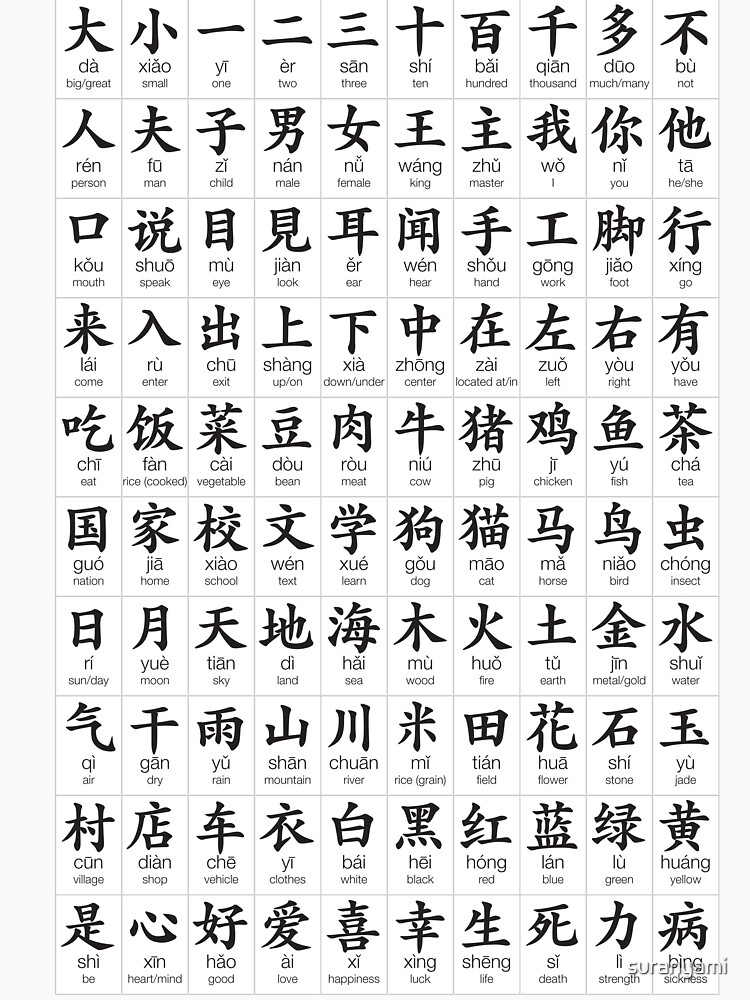 大 小 一 二 三 十 百 千 多 不
dà xiǎo yī èr sān shí bǎi qiān dūo bù
big/great small one two three ten hundred thousand much/many not
人 夫 子 男 女 王 主 我 你 他
rén fū zǐ nán nǚ wáng zhǔ wǒ nǐ tā
person man child male female king master I you he/she
口 说 目 見 耳 闻 手 工 脚 行
kǒu shuō mù jiàn ěr wén shǒu gōng jiǎo xíng
mouth speak eye look ear hear hand work foot go
来 入 出 上 下 中 在 左 右 有
lái rù chū shàng xià zhōng zài zuǒ yòu yǒu
come enter exit up/on down/under center located at/in left right have
吃 饭 菜 豆 肉 牛 猪 鸡 鱼 茶
chī fàn cài dòu ròu niú zhū jī yú chá
eat rice (cooked) vegetable bean meat cow pig chicken fish tea
国 家 校 文 学 狗 猫 马 鸟 虫
guó jiā xiào wén xué gǒu māo mǎ niǎo chóng
nation home school text learn dog cat horse bird insect
日 月 天 地 海 木 火 土 金 水
rí yuè tiān dì hǎi mù huǒ tǔ jīn shuǐ
sun/day moon sky land sea wood fire earth metal/gold water
气 干 雨 山 川 米 田 花 石 玉
qì gān yǔ shān chuān mǐ tián huā shí yù
air dry rain mountain river rice (grain) field flower stone jade
村 店 车 衣 白 黑 红 蓝 绿 黄
cūn diàn chē yī bái hēi hóng lán lù huáng
village shop vehicle clothes white black red blue green yellow
是 心 好 爱 喜 幸 生 死 力 病
shì xīn hǎo ài xǐ xìng shēng sǐ lì bìng
be heart/mind good love happiness luck life death strength sickness
suranyami